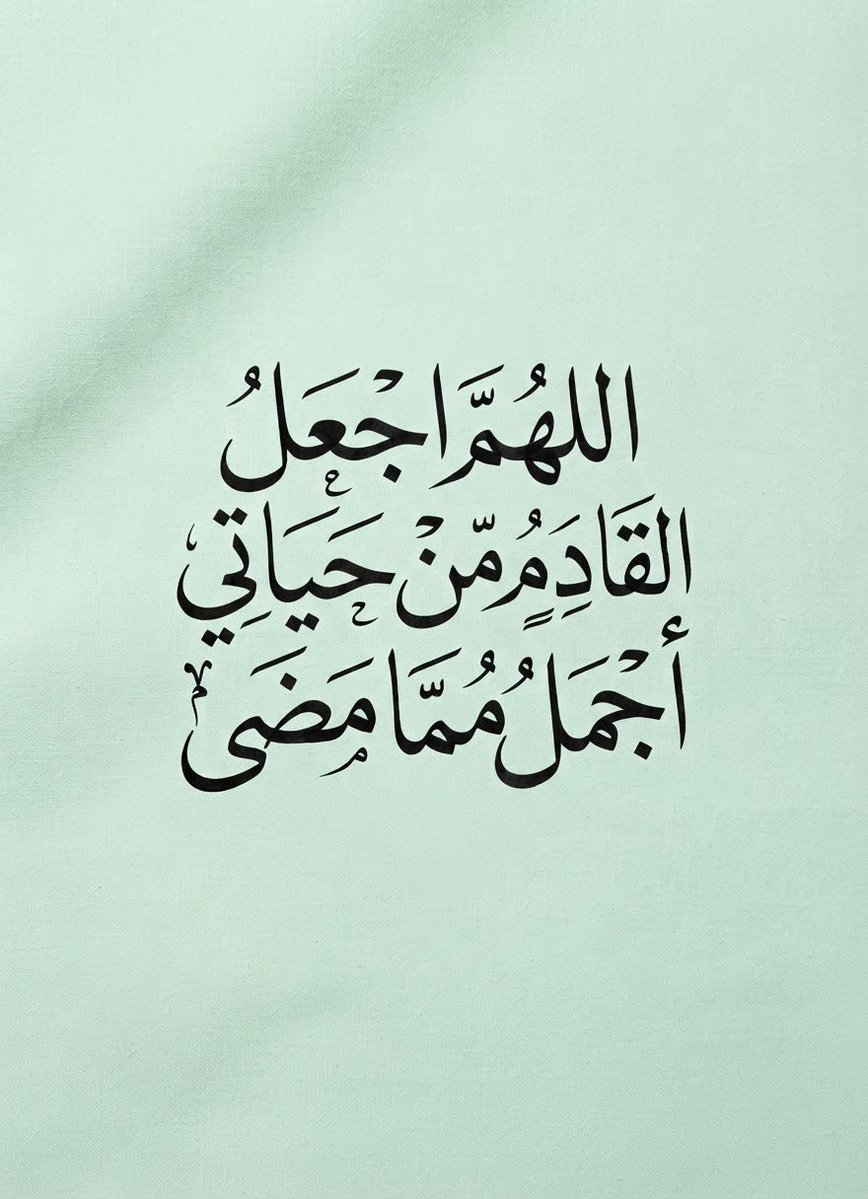 اللهُمَّ اجْعَلُ
القَادِمُ مِّنْ حَيَاتِي
أجْمَلُ مُمَّا مَضَى